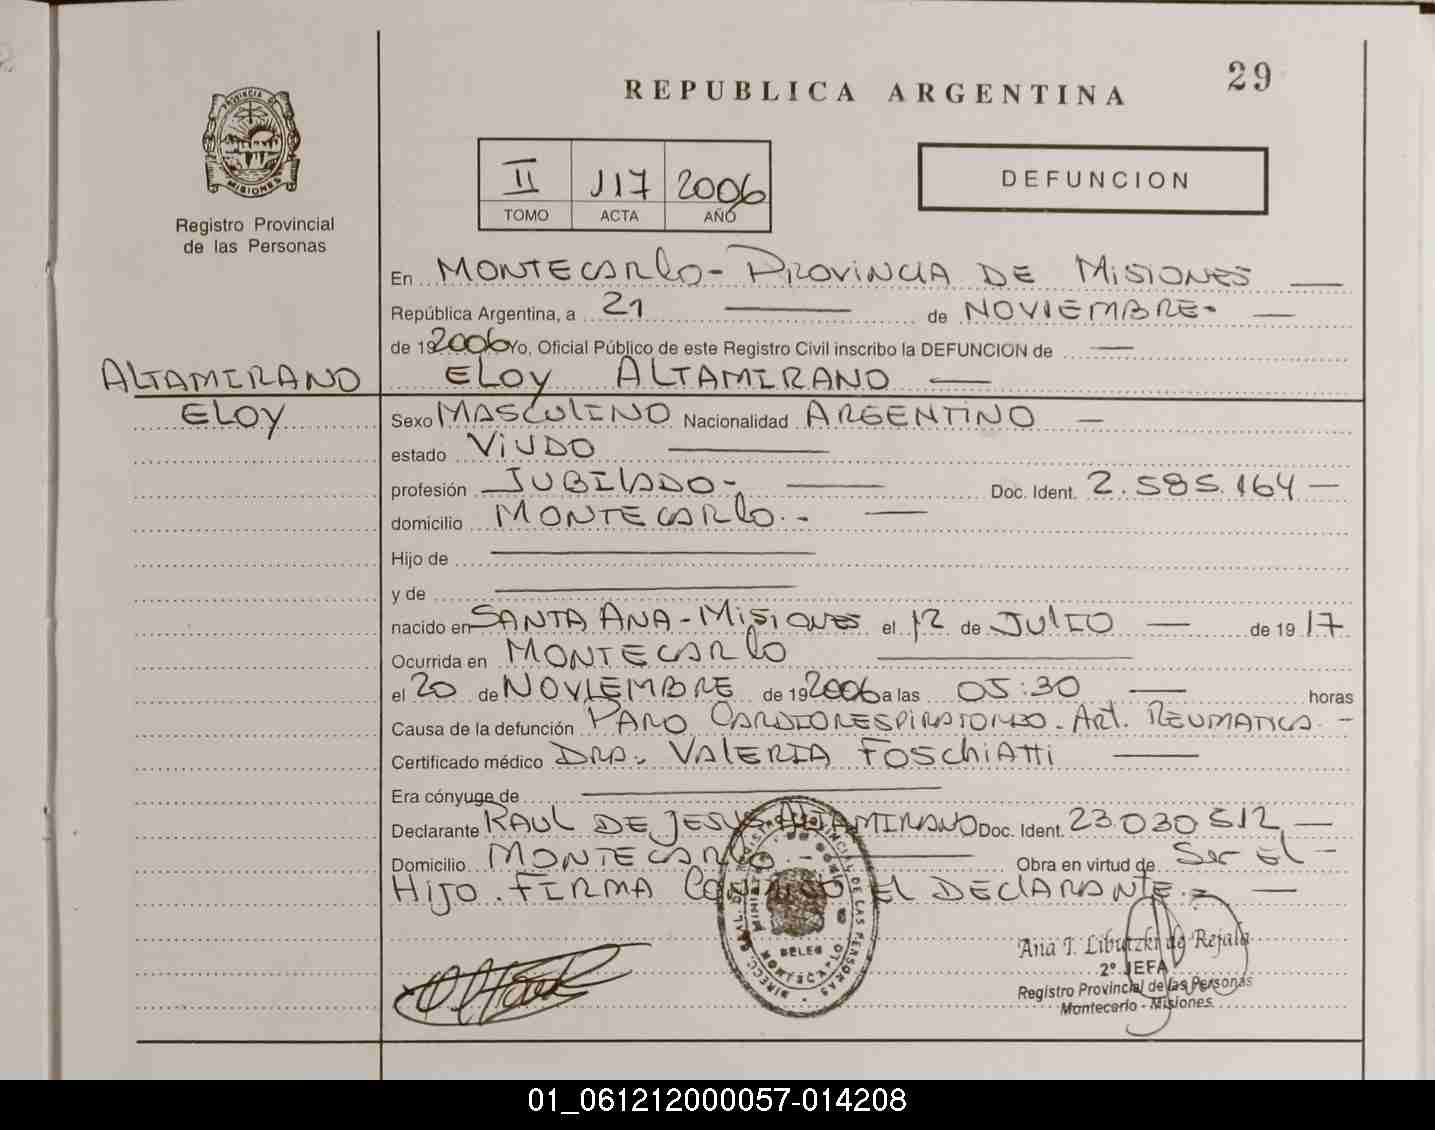 29
REPUBLICA ARGENTINA
PROVINCIA DE
MISIONES
Registro Provincial
de las Personas
II 117 2006
TOMO ACTA AÑO
DEFUNCION
En MONTECARLO - PROVINCIA DE MISIONES —
República Argentina, a 21 — de NOVIEMBRE - —
de 19 2006 Yo, Oficial Público de este Registro Civil inscribo la DEFUNCION de —
ALTAMIRANO
ELOY
ELOY ALTAMIRANO —
Sexo MASCULINO Nacionalidad ARGENTINO —
estado VIUDO —
profesión JUBILADO - — Doc. Ident. 2.585.164 —
domicilio MONTECARLO. - —
Hijo de —
y de —
nacido en SANTA ANA - MISIONES el 12 de JULIO — de 19 17
Ocurrida en MONTECARLO —
el 20 de NOVIEMBRE de 19 2006 a las 05:30 — horas
Causa de la defunción PARO CARDIORESPIRATORIO. ART. REUMATICA. -
Certificado médico DRA. VALERIA FOSCHIATTI —
Era cónyuge de —
Declarante RAUL DE JESUS ALTAMIRANO Doc. Ident. 23.030.512 —
Domicilio MONTECARLO. - — Obra en virtud de Ser El -
HIJO. FIRMA CONMIGO EL DECLARANTE. = —
Ana T. Libutzki de Rejala
2º JEFA
Registro Provincial de las Personas
Montecarlo - Misiones
01_061212000057-014208